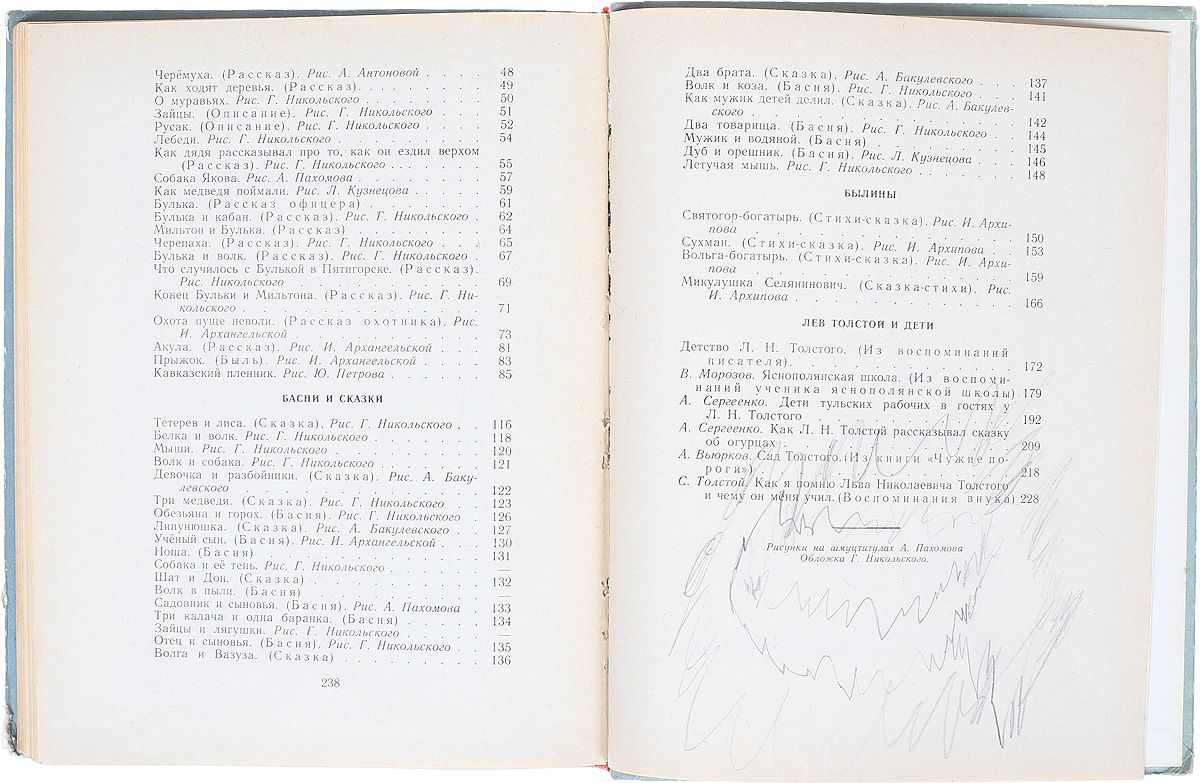 Черёмуха. (Рассказ). Рис. А. Антоновой . . . . 48
Как ходят деревья. (Рассказ). . . . . . . . . 49
О муравьях. Рис. Г. Никольского . . . . . . . 50
Зайцы. (Описание). Рис. Г. Никольского . . . . 51
Русак. (Описание). Рис. Г. Никольского . . . . 52
Лебеди. Рис. Г. Никольского . . . . . . . . . 54
Как дядя рассказывал про то, как он ездил верхом
(Рассказ). Рис. Г. Никольского . . . . . . 55
Собака Якова. Рис. А. Пахомова . . . . . . . . 57
Как медведя поймали. Рис. Л. Кузнецова . . . . 59
Булька. (Рассказ офицера) . . . . . . . . 61
Булька и кабан. (Рассказ). Рис. Г. Никольского . 62
Мильтон и Булька. (Рассказ) . . . . . . . . . 64
Черепаха. (Рассказ). Рис. Г. Никольского . . . 65
Булька и волк. (Рассказ). Рис. Г. Никольского . 67
Что случилось с Булькой в Пятигорске. (Рассказ).
Рис. Никольского . . . . . . . . . . . . 69
Конец Бульки и Мильтона. (Рассказ). Рис. Г. Ни-
кольского . . . . . . . . . . . . . . . 71
Охота пуще неволи. (Рассказ охотника). Рис.
И. Архангельской . . . . . . . . . . . . 73
Акула. (Рассказ). Рис. И. Архангельской . . . 79
Прыжок. (Быль). Рис. И. Архангельской . . . . 83
Кавказский пленник. Рис. Ю. Петрова . . . . . 85
БАСНИ И СКАЗКИ
Тетерев и лиса. (Сказка). Рис. Г. Никольского . . 116
Белка и волк. Рис. Г. Никольского . . . . . . 118
Мыши. Рис. Г. Никольского . . . . . . . . . 120
Волк и собака. Рис. Г. Никольского . . . . . . 121
Девочка и разбойники. (Сказка). Рис. А. Баку-
левского . . . . . . . . . . . . . . . 122
Три медведя. (Сказка). Рис. Г. Никольского . . 123
Обезьяна и горох. (Басня). Рис. Г. Никольского . 126
Липунюшка. (Сказка). Рис. А. Бакулевского . . 127
Учёный сын. (Басня). Рис. И. Архангельской . . 130
Ноша. (Басня) . . . . . . . . . . . . . 131
Собака и её тень. Рис. Г. Никольского . . . . . —
Шат и Дон. (Сказка) . . . . . . . . . . . 132
Волк в пыли. (Басня) . . . . . . . . . . . —
Садовник и сыновья. (Басня). Рис. А. Пахомова . 133
Три калача и одна баранка. (Басня) . . . . . . 134
Зайцы и лягушки. Рис. Г. Никольского . . . . . —
Отец и сыновья. (Басня). Рис. Г. Никольского . . 135
Волга и Вазуза. (Сказка) . . . . . . . . . 136
238
Два брата. (Сказка). Рис. А. Бакулевского . . . 137
Волк и коза. (Басня). Рис. Г. Никольского . . . 141
Как мужик детей делил. (Сказка). Рис. А. Бакулев-
ского . . . . . . . . . . . . . . . . 142
Два товарища. (Басня). Рис. Г. Никольского . . 144
Мужик и водяной. (Басня) . . . . . . . . . 145
Дуб и орешник. (Басня). Рис. Л. Кузнецова . . . 146
Летучая мышь. Рис. Г. Никольского . . . . . . 148
БЫЛИНЫ
Святогор-богатырь. (Стихи-сказка). Рис. И. Архи-
пова . . . . . . . . . . . . . . . . 150
Сухман. (Стихи-сказка). Рис. И. Архипова . . 153
Вольга-богатырь. (Стихи-сказка). Рис. И. Архи-
пова . . . . . . . . . . . . . . . . 159
Микулушка Селянинович. (Сказка-стихи). Рис.
И. Архипова . . . . . . . . . . . . . 166
ЛЕВ ТОЛСТОЙ И ДЕТИ
Детство Л. Н. Толстого. (Из воспоминаний
писателя). . . . . . . . . . . . . . . 172
В. Морозов. Яснополянская школа. (Из воспоми-
наний ученика яснополянской школы) 179
А. Сергеенко. Дети тульских рабочих в гостях у
Л. Н. Толстого . . . . . . . . . . . . 192
А. Сергеенко. Как Л. Н. Толстой рассказывал сказку
об огурцах . . . . . . . . . . . . . . 209
А. Вьюрков. Сад Толстого. (Из книги «Чужие по-
роги») . . . . . . . . . . . . . . . . 218
С. Толстой. Как я помню Льва Николаевича Толстого
и чему он меня учил. (Воспоминания внука) 228
Рисунки на шмуцтитулах А. Пахомова
Обложка Г. Никольского.